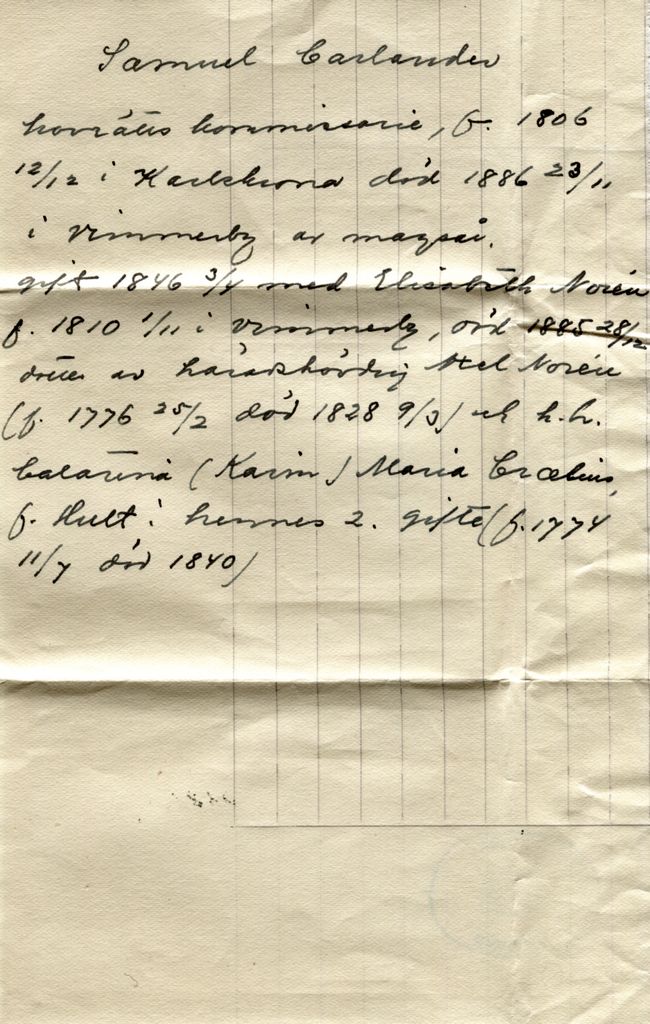 Samuel Carlander
hovrätts kommissarie, f. 1806
12/12 i Karlskrona död 1886 23/11
i Vimmerby av magsår.
gift 1846 3/4 med Elisabeth Norén
f. 1810 1/11 i Vimmerby, död 1885 28/12
dotter av häradshövding Axel Norén
(f. 1776 25/2 död 1828 9/3) och h.h.
Catarina (Karin) Maria Crælius
f. Hult i hennes 2. gifte (f. 1774
11/7 död 1840)